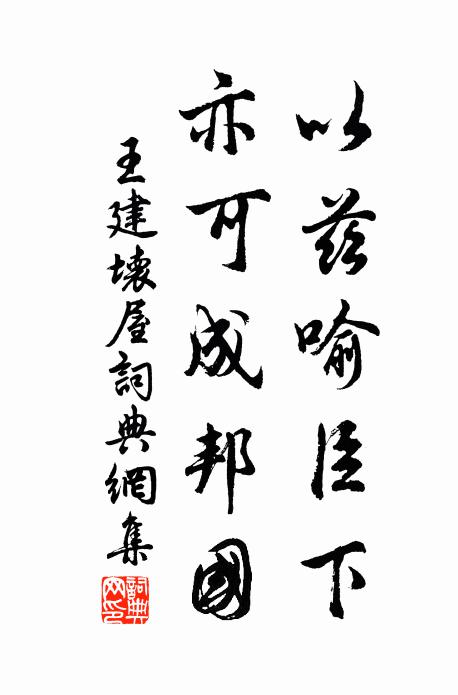 以茲喻臣下
亦可成邦國
王建壞屋詞典網集
詞典网印